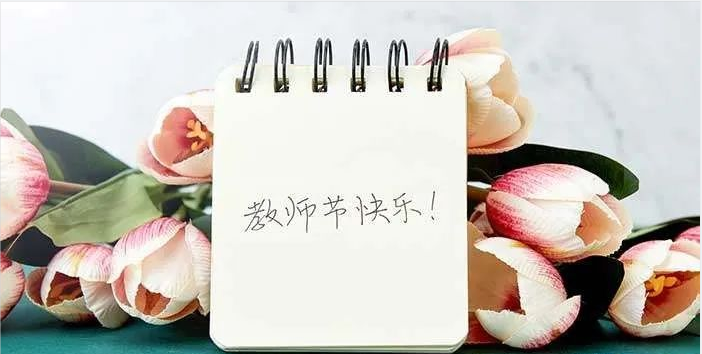 教师节快乐!